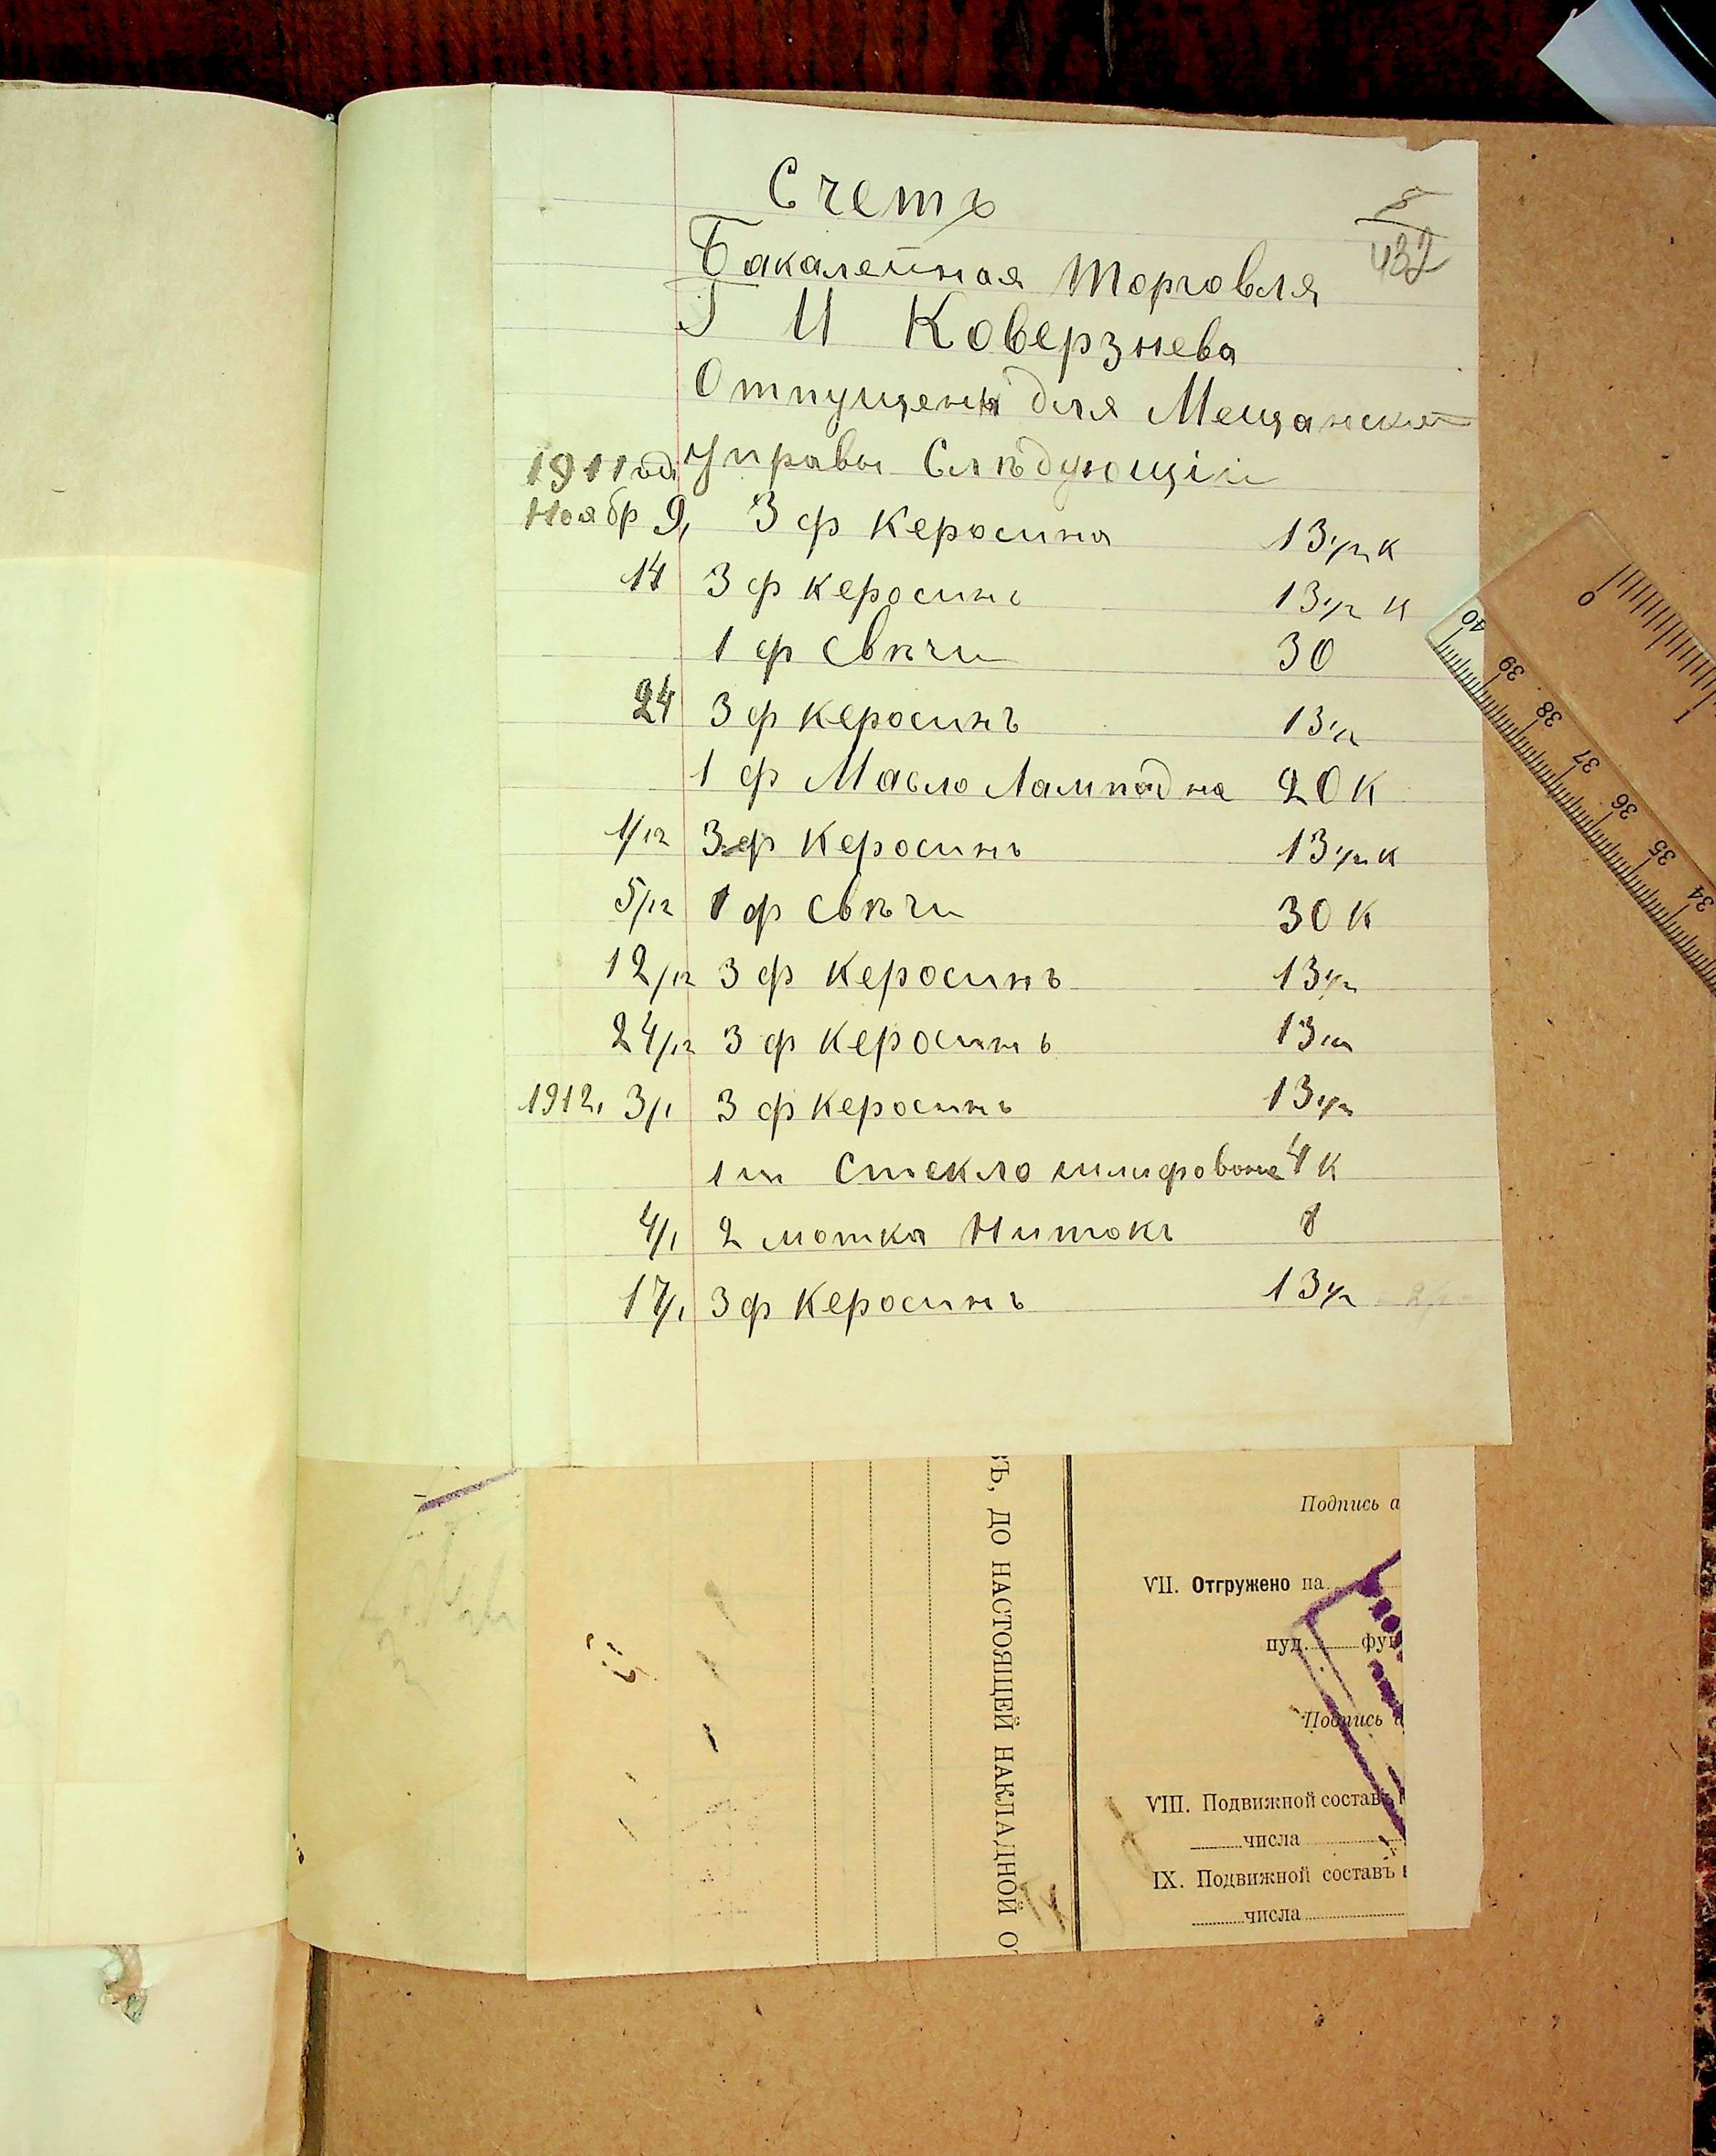 Счетъ
8
432
Бакалейная Торговля
Г И Коверзнева
Отпущенн для Мещанской
1911 год Управы Слѣдующій
Ноябр 9, 3 ф Керосина 13 1/2 к
14 3 ф Керосинъ 13 1/2 к
1 ф Свѣчи 30
24 3 ф Керосинъ 13 1/2
1 ф Масло Лампадна 20 К
1/12 3 ф Керосинъ 13 1/2 к
5/12 1 ф Свѣчи 30 К
12/12 3 ф Керосинъ 13 1/2
24/12 3 ф Керосинъ 13 1/2
1912, 3/1 3 ф Керосинъ 13 1/2
1 шт Стекло шлифована 4 К
4/1 2 мотка Нитокъ 8
17/1 3 ф Керосинъ 13 1/2
Ъ, ДО НАСТОЯЩЕЙ НАКЛАДНОЙ О
Подпись а
VII. Отгружено на
пуд. фун
Подпись а
VIII. Подвижной составъ
числа
IX. Подвижной составъ
числа
0
1
40
39
38
37
36
35
34